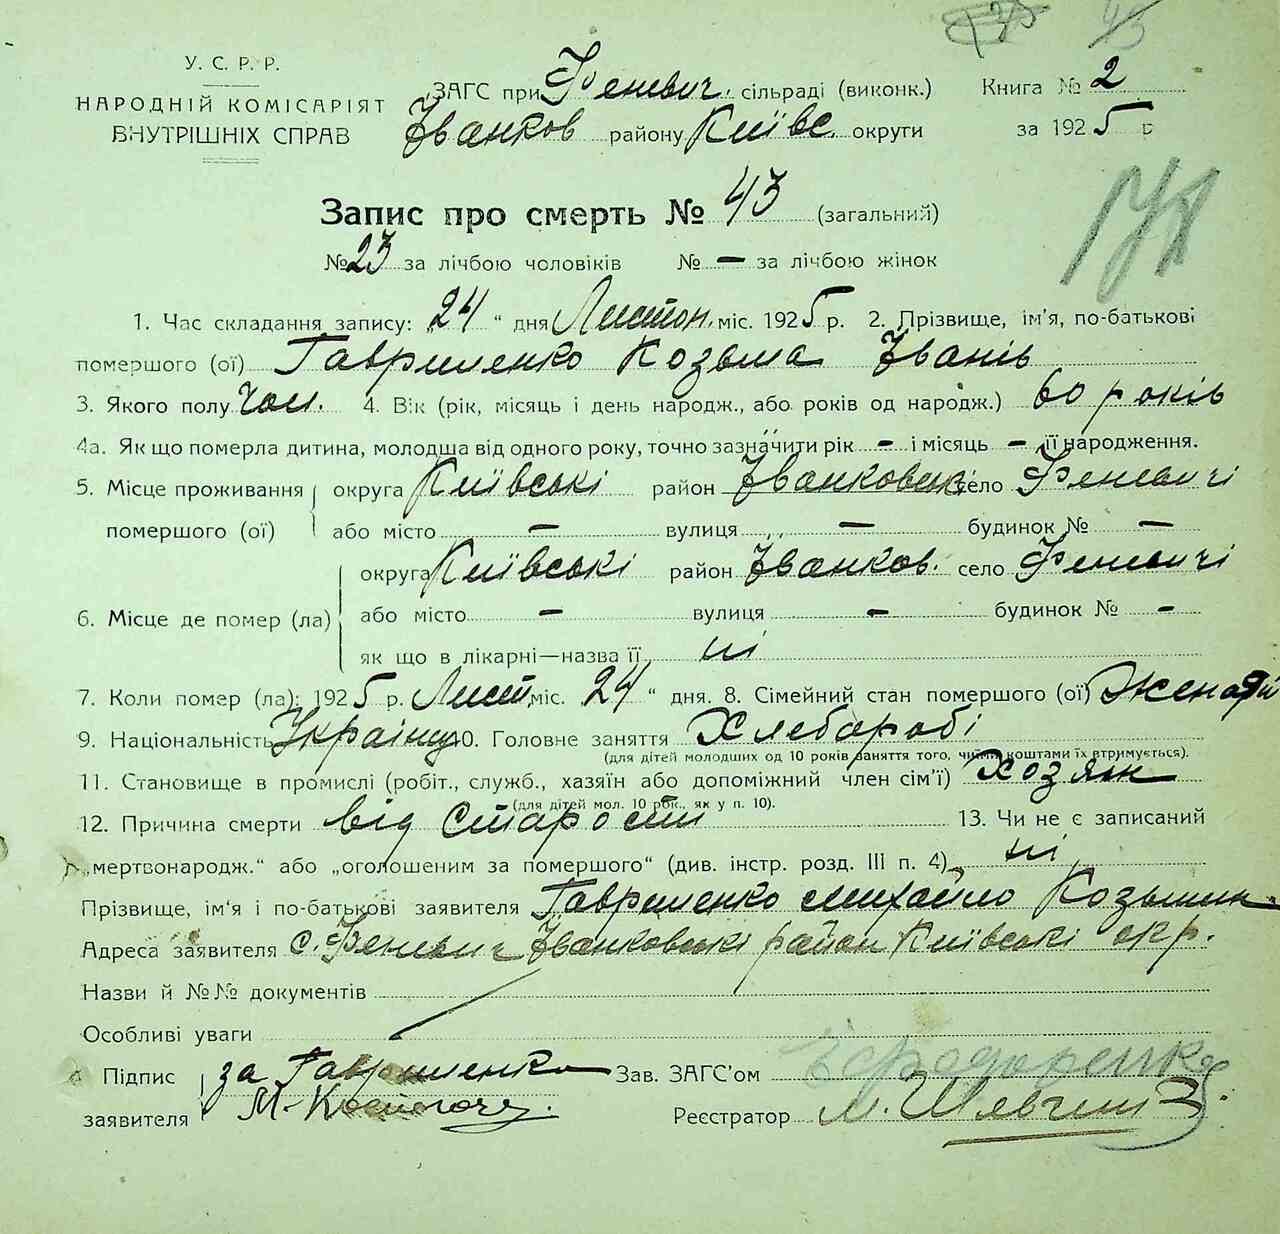 У. С. Р. Р.
НАРОДНІЙ КОМІСАРІЯТ
ВНУТРІШНІХ СПРАВ
ЗАГС при Феневич. сільраді (виконк.) Книга № 2
Іванков району Київс. округи за 1925 р
Запис про смерть № 43 (загальний)
№ 23 за лічбою чоловіків № — за лічбою жінок
1. Час складання запису: 24 " дня Листоп. міс. 1925 р. 2. Прізвище, ім'я, по-батькові
помершого (ої) Гавриленко Козьма Іванів
3. Якого полу Чол. 4. Вік (рік, місяць і день народж., або років од народж.) 60 років
4а. Як що померла дитина, молодша від одного року, точно зазначити рік — і місяць — її народження.
5. Місце проживання округа Київські район Іванковські село Феневичі
помершого (ої) або місто — вулиця — будинок № —
округа Київські район Іванков. село Феневичі
6. Місце де помер (ла) або місто — вулиця — будинок № —
як що в лікарні—назва її ні
7. Коли помер (ла): 1925 р. Лист. міс. 24 " дня. 8. Сімейний стан помершого (ої) Женатй
9. Національність Україну 10. Головне заняття Хлебаробі
(для дітей молодших од 10 років заняття того, чиїми коштами їх втримується).
11. Становище в промислі (робіт., служб., хазяїн або допоміжний член сім'ї) Хозяин
(для дітей мол. 10 рок., як у п. 10).
12. Причина смерти від старости 13. Чи не є записаний
„мертвонародж." або „оголошеним за помершого" (див. інстр. розд. III п. 4) ні
Прізвище, ім'я і по-батькові заявителя Гавриленко Михайло Козьмин
Адреса заявителя с. Феневич Іванковські район Київські окр.
Назви й №№ документів
Особливі уваги
Підпис за Гавриленка Зав. ЗАГС'ом
заявителя М. Реєстратор М. Шевченко